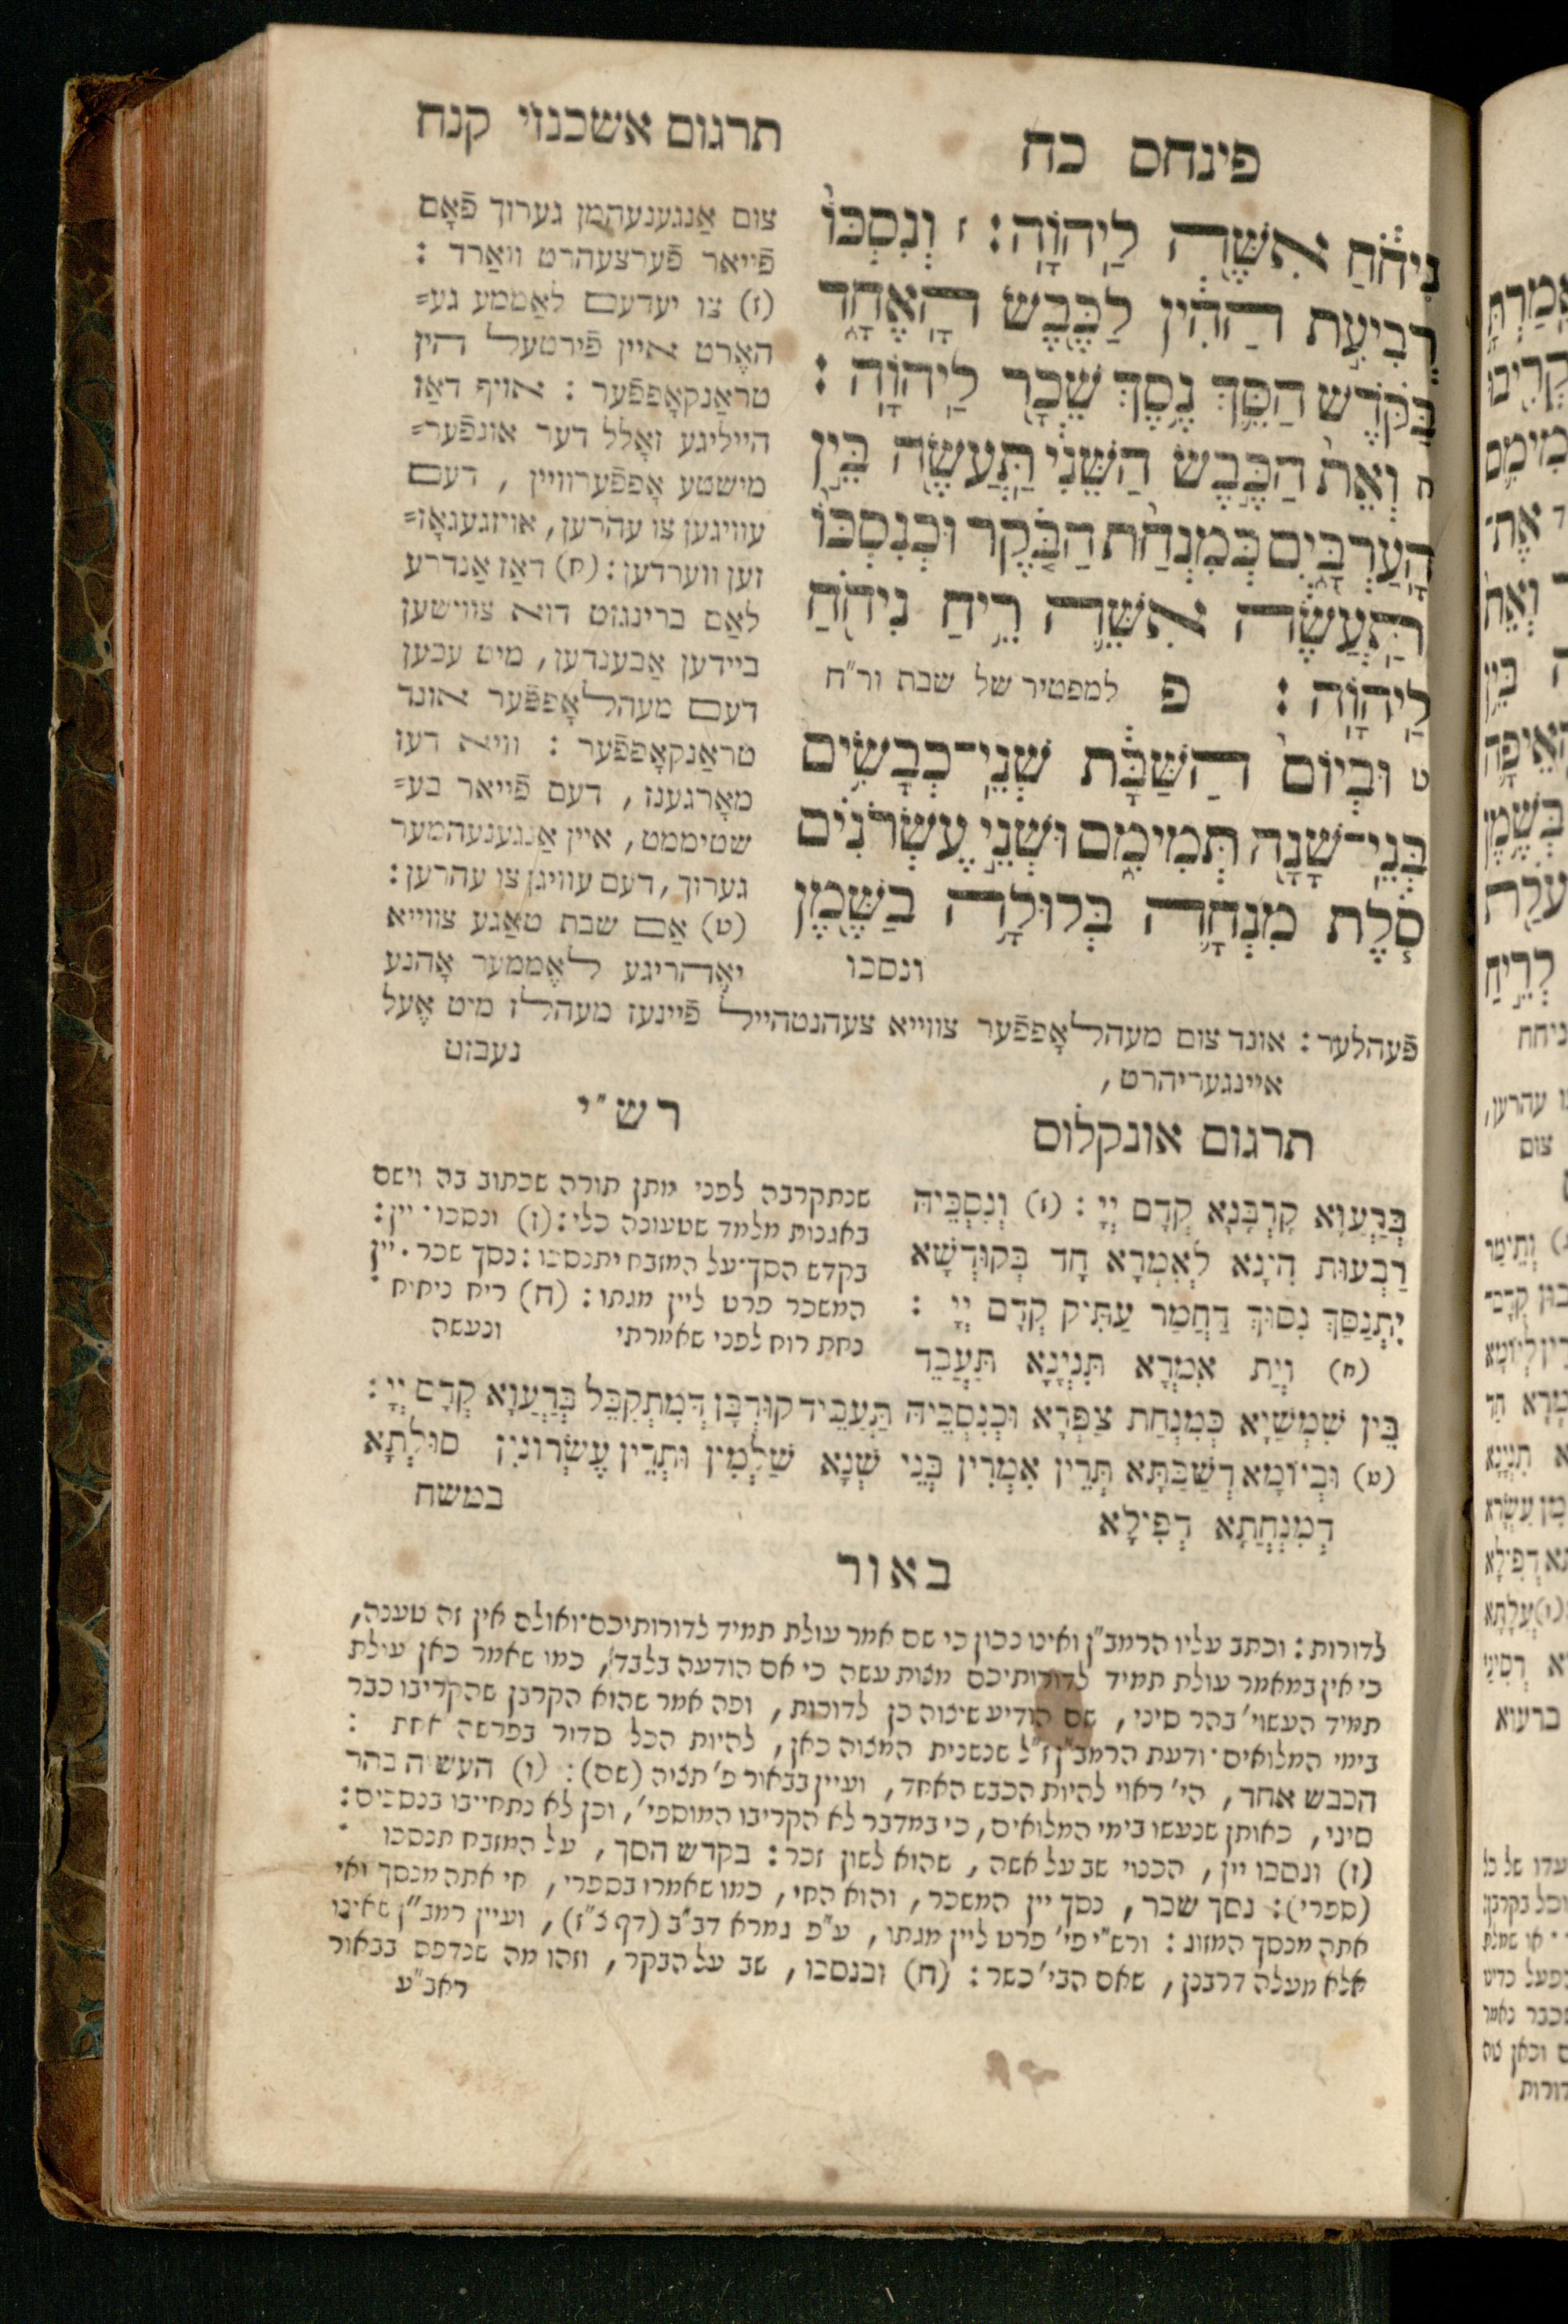 פינחס כח
נִיחֹחַ אִשֶּׁה לַיהוָה: ז וְנִסְכּוֹ
רְבִיעִת הַהִין לַכֶּבֶשׂ הָאֶחָד
בַּקֹּדֶשׁ הַסֵּךְ נֶסֶךְ שֵׁכָר לַיהוָה:
ח וְאֵת הַכֶּבֶשׂ הַשֵּׁנִי תַּעֲשֶׂה בֵּין
הָעַרְבָּיִם כְּמִנְחַת הַבֹּקֶר וּכְנִסְכּוֹ
תַּעֲשֶׂה אִשֵּׁה רֵיחַ נִיחֹחַ
לַיהוָה: פ למפטיר של שבת ור"ח
ט וּבְיוֹם הַשַּׁבָּת שְׁנֵי־כְבָשִׂים
בְּנֵי־שָׁנָה תְּמִימִם וּשְׁנֵי עֶשְׂרֹנִים
סֹלֶת מִנְחָה בְּלוּלָה בַשֶּׁמֶן
ונסכו
תרגום אשכנזי קנח
צום אַנגענעהמן גערוך פֿאָם
פֿייאר פֿערצעהרט וואַרד:
(ז) צו יעדעם לאַממע גע=
האֶרט איין פֿירטעל הין
טראַנקאָפפֿער: אויף דאַז
הייליגע זאָלל דער אונפֿער=
מישטע אָפפֿערוויין, דעם
עוויגען צו עהרען, אויזגעגאָז=
זען ווערדען: (ח) דאַז אַנדרע
לאַם ברינגזט דוא צווישען
ביידען אַבענדען, מיט עבען
דעם מעהלאָפפֿער אונד
טראַנקאָפפֿער: וויא דעז
מאָרגענז, דעם פֿייאר בע=
שטיממט, איין אַנגענעהמער
גערוך, דעם עוויגן צו עהרען:
(ט) אַם שבת טאַגע צווייא
יאֶהריגע לאֶממער אָהנע
פֿעהלער: אונד צום מעהלאָפפֿער צווייא צעהנטהייל פֿיינעז מעהלז מיט אֶעל
איינגעריהרט, נעבזט
תרגום אונקלוס
בְּרַעֲוָא קֻרְבָּנָא קֳדָם יְיָ: (ז) וְנִסְכֵּיהּ
רַבְעוּת הִינָא לְאִמְרָא חָד בְּקוּדְשָׁא
יִתְנַסַּךְ נִסוּךְ דַּחֲמַר עַתִּיק קֳדָם יְיָ:
(ח) וְיַת אִמְרָא תִּנְיָנָא תַּעֲבֵד
בֵּין שִׁמְשַׁיָא כְּמִנְחַת צַפְרָא וּכְנִסְכֵּיהּ תַּעֲבֵיד קוּרְבָּן דְּמִתְקַבֵּל בְּרַעֲוָא קֳדָם יְיָ:
(ט) וּבְיוֹמָא דְשַׁבַּתָּא תְּרֵין אִמְרִין בְּנֵי שְׁנָא שַׁלְמִין וּתְרֵין עֶשְׂרוֹנִין סוּלְתָּא
דְמִנְחֲתָא דְפִילָא במשח
רש"י
שנתקרבה לפני מתן תורה שכתוב בה וישם
באגנות מלמד שטעונה כלי: (ז) ונסכו· יין:
בקדש הסך· על המזבח יתנסכו: נסך שכר· יין
המשכר פרט ליין מגתו: (ח) ריח ניחוח
נחת רוח לפני שאמרתי ונעשה
באור
לדורות: וכתב עליו הרמב"ן ואינו נכון כי שם אמר עולת תמיד לדורותיכם· ואולם אין זה טענה,
כי אין במאמר עולת תמיד לדורותיכם מצות עשה כי אם הודעה בלבד, כמו שאמר כאן עולת
תמיד העשוי' בהר סיני, שם הודיע שיצוה כן לדורות, ופה אמר שהוא הקרבן שהקריבו כבר
בימי המלואים· ודעת הרמב"ן ז"ל שנשנית המצוה כאן, להיות הכל סדור בפרשה אחת:
הכבש אחד, הי' ראוי להיות הכבש האחד, ועיין בבאור פ' תצוה (שם): (ו) העשיה בהר
סיני, כאותן שנעשו בימי המלואים, כי במדבר לא הקריבו המוספי', וכן לא נתחייבו בנסכים:
(ז) ונסכו יין, הכנוי שב על אשה, שהוא לשון זכר: בקדש הסך, על המזבח תנסכו
(ספרי): נסך שכר, נסך יין המשכר, והוא החי, כמו שאמרו בספרי, חי אתה מנסך ואי
אתה מנסך המזוג: ורש"י פי' פרט ליין מגתו, ע"פ גמרא דב"ב (דף צ"ז), ועיין רמב"ן שאינו
אלא מעלה דרבנן, שאם הבי' כשר: (ח) וכנסכו, שב על הבקר, וזהו מה שנדפס בבאור
ראב"ע